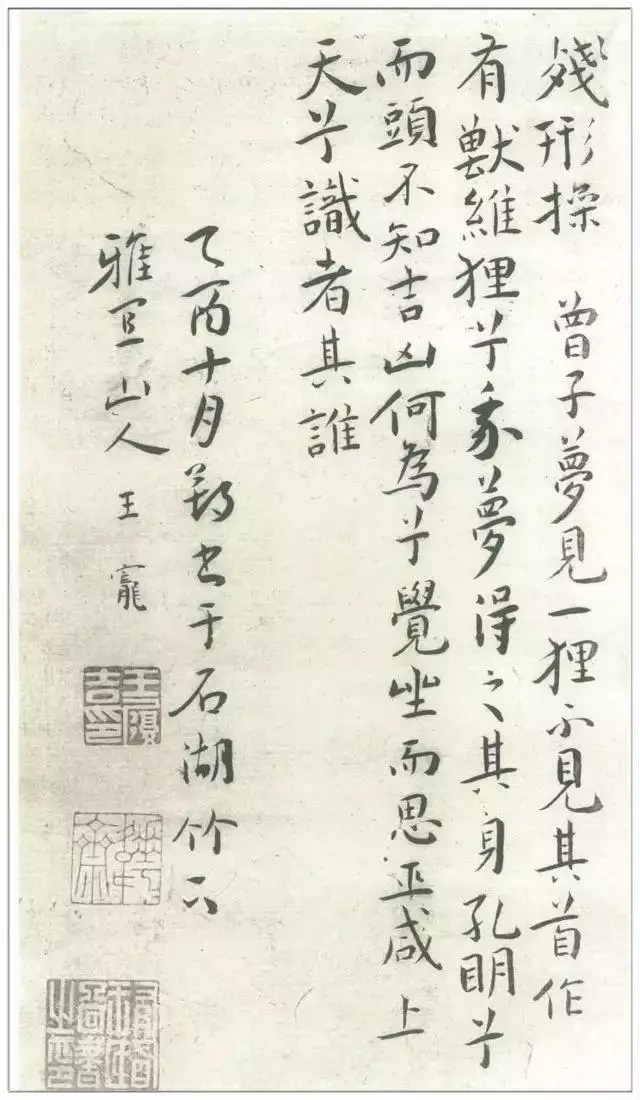 殘形操 曾子夢見一狸不見其首作
有獸維狸兮我夢得之其身孔明兮
而頭不知吉凶何為兮覺坐而思巫咸上
天兮識者其誰
乙酉十月朔書于石湖竹下
雅宜山人 王寵
王履吉印